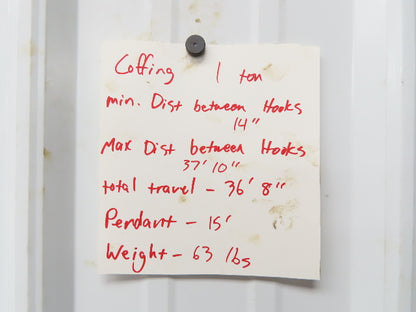 Coffing 1 ton
min. Dist between Hooks
14"
Max Dist between Hooks
37' 10"
total travel - 36' 8"
Pendant - 15'
Weight - 63 lbs